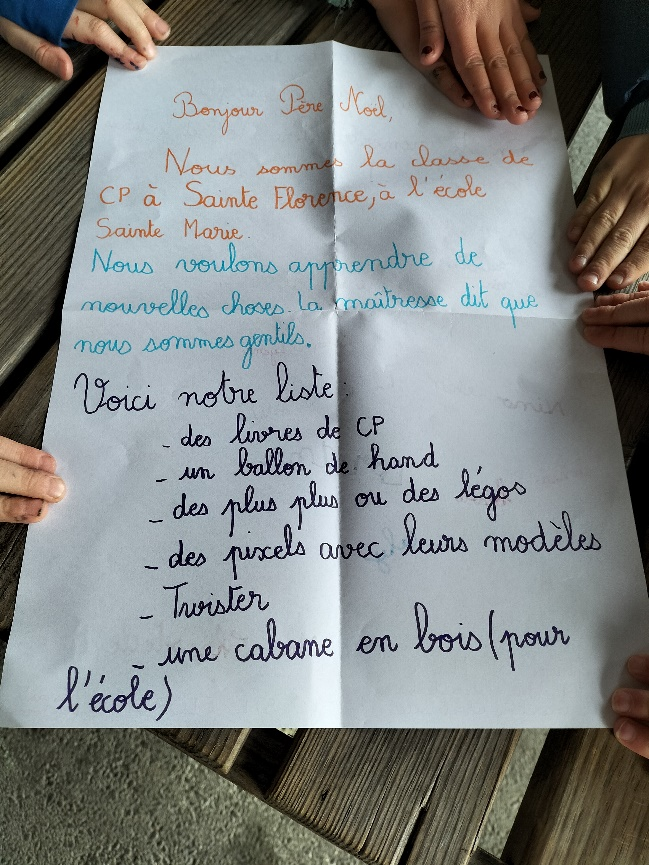 Bonjour Père Noël,
Nous sommes la classe de
CP à Sainte Florence, à l'école
Sainte Marie.
Nous voulons apprendre de
nouvelles choses. La maîtresse dit que
nous sommes gentils.
Voici notre liste :
- des livres de CP
- un ballon de hand
- des plus plus ou des légos
- des pixels avec leurs modèles
- Twister
- une cabane en bois (pour
l'école)